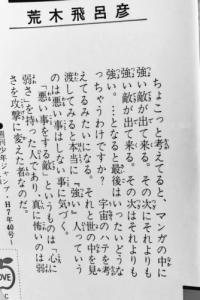 荒木飛呂彦
ちょこっと考えてると、マンガの中に
強い敵が出て来る。その次にそれよりも
強い敵が出て来る。その次はそれよりも
強い。…となると最後はいったいどうな
っちゃうわけですか？ 宇宙のハテを考
えてるみたいになる。それと世の中を見
渡してみると本当に『強い』っていう
のは悪い事はしない事に気づく。
「悪い事をする敵」というものは「心に
弱さ」を持った人であり、真に怖いのは弱
さを攻撃に変えた者なのだ。
週刊少年ジャンプ・H7年40号
LOVE
C